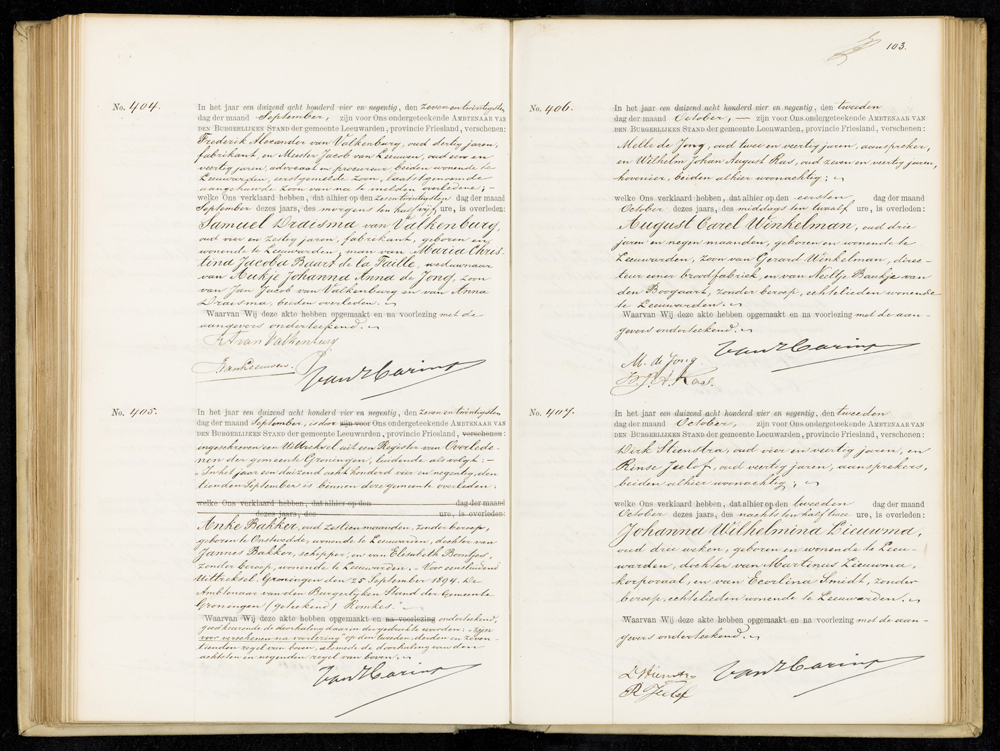 103.
No. 404.
In het jaar een duizend acht honderd vier en negentig, den zevenentwintigsten
dag der maand September, zijn voor Ons ondergeteekende AMBTENAAR VAN
DEN BURGERLIJKEN STAND der gemeente Leeuwarden, provincie Friesland, verschenen:
Frederik Alexander van Valkenburg, oud dertig jaren,
fabrikant, en Meester Jacob van Leeuwen, oud een en
veertig jaren, advocaat en procureur, beiden wonende te
Leeuwarden, eerstgemelde zoon, laatstgenoemde
aangehuwde zoon van na te melden overledene; -
welke Ons verklaard hebben, dat alhier op den zesentwintigsten dag der maand
September dezes jaars, des morgens ten half vijf ure, is overleden:
Samuel Draisma van Valkenburg,
oud vier en zestig jaren, fabrikant, geboren en
wonende te Leeuwarden, man van Maria Chris-
tina Jacoba Bauer de la Faille, weduwnaar
van Aukje Johanna Anna de Jong, zoon
van Jan Jacob van Valkenburg en van Anna
Draisma, beiden overleden.
Waarvan Wij deze akte hebben opgemaakt en na voorlezing met de
aangevers onderteekend.
FA van Valkenburg
J van Leeuwen.
No. 405.
In het jaar een duizend acht honderd vier en negentig, den zeven en twintigsten
dag der maand September, is door zijn voor Ons ondergeteekende AMBTENAAR VAN
DEN BURGERLIJKEN STAND der gemeente Leeuwarden, provincie Friesland, verschenen:
ingeschreven een Uittreksel uit een Register van Overlede-
nen der gemeente Groningen, luidende als volgt: -
"In het jaar een duizend acht honderd vier en negentig, den
tienden September is binnen deze gemeente overleden.
welke Ons verklaard hebben, dat alhier op den dag der maand
dezes jaars, des ure, is overleden:
Anke Bakker, oud zestien maanden, zonder beroep,
geboren te Onstwedde, wonende te Leeuwarden, dochter van
Jannes Bakker, schipper, en van Elisabeth Bontjes,
zonder beroep, wonende te Leeuwarden. - Voor eensluidend
Uittreksel. Groningen den 25 September 1894. De
Ambtenaar van den Burgerlijken Stand der Gemeente
Groningen (geteekend) Romkes." -
Waarvan Wij deze akte hebben opgemaakt en na voorlezing onderteekend,
goedkeurende de doorhaling daarin der gedrukte woorden: "zijn
voor verschenen na voorlezing" op den tweeden, derden en zeven-
tienden regel van boven, alsmede de doorhaling van den
achtsten en negenden regel van boven.
No. 406.
In het jaar een duizend acht honderd vier en negentig, den tweeden
dag der maand October, — zijn voor Ons ondergeteekende AMBTENAAR VAN
DEN BURGERLIJKEN STAND der gemeente Leeuwarden, provincie Friesland, verschenen:
Melle de Jong, oud twee en veertig jaren, aanspreker,
en Wilhelm Johan August Kas, oud zeven en veertig jaren,
hovenier, beiden alhier woonachtig;
welke Ons verklaard hebben, dat alhier op den eersten dag der maand
October dezes jaars, des middags ten twaalf ure, is overleden:
August Carel Winkelman, oud drie
jaren en negen maanden, geboren en wonende te
Leeuwarden, zoon van Gerard Winkelman, direc-
teur eener broodfabriek en van Neeltje Baukje van
den Boogaart, zonder beroep, echtelieden wonende
te Leeuwarden.
Waarvan Wij deze akte hebben opgemaakt en na voorlezing met de aan-
gevers onderteekend.
M. de Jong
No. 407.
In het jaar een duizend acht honderd vier en negentig, den tweeden
dag der maand October, zijn voor Ons ondergeteekende AMBTENAAR VAN
DEN BURGERLIJKEN STAND der gemeente Leeuwarden, provincie Friesland, verschenen:
Dirk Stienstra, oud vier en veertig jaren, en
Rinse Jeelof, oud veertig jaren, aansprekers,
beiden alhier woonachtig;
welke Ons verklaard hebben, dat alhier op den tweeden dag der maand
October dezes jaars, des nachts ten half twee ure, is overleden:
Johanna Wilhelmina Lieuwma,
oud drie weken, geboren en wonende te Leeu-
warden, dochter van Martinus Lieuwma,
korporaal, en van Ecorlina Smidt, zonder
beroep, echtelieden wonende te Leeuwarden.
Waarvan Wij deze akte hebben opgemaakt en na voorlezing met de aan-
gevers onderteekend.
D Stienstra
R Jeelof